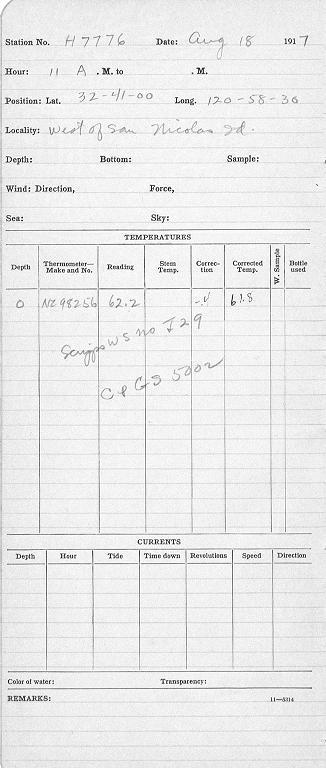 Station No. H7776 Date: Aug 18 1917
Hour: 11 A .M. to .M.
Position: Lat. 32-41-00 Long. 120-58-30
Locality: West of San Nicolas Id.
Depth: Bottom: Sample:
Wind: Direction, Force,
Sea: Sky:
TEMPERATURES
Depth Thermometer—Make and No. Reading Stem Temp. Correction Corrected Temp. W. Sample Bottle used
0 NZ 98256 62.2 -.4 61.8
Scripps WS no J29
C & GS 5002
CURRENTS
Depth Hour Tide Time down Revolutions Speed Direction
Color of water: Transparency:
REMARKS: 11—5314